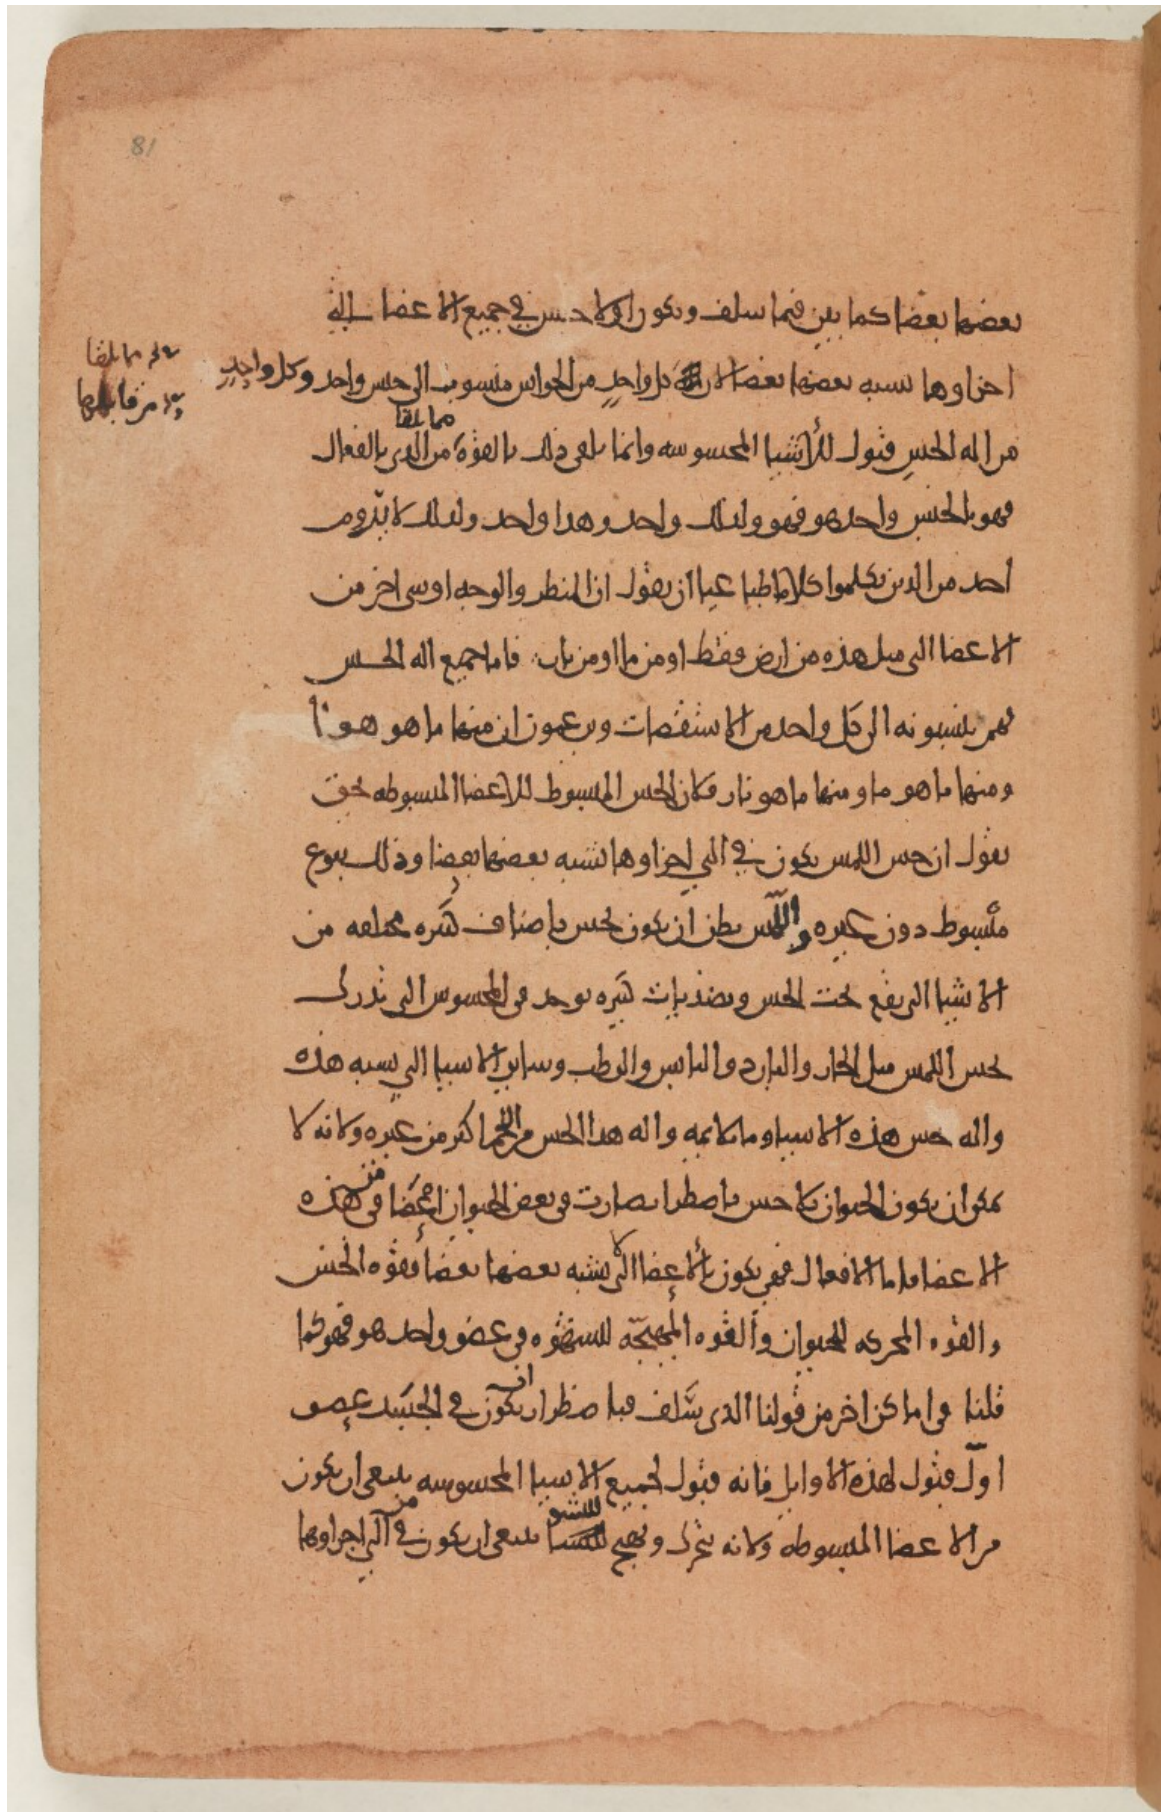 81
بعضها بعضا كما بين فيما سلف ويكون اولا حس في جميع الاعضا التي
اجزاوها تشبه بعضها بعضا لان كل واحد من الحواس منسوب الى جنس واحد وكل واحد
نخه مما يلقا
من قابلها
من اله الحس قبول للأشيا المحسوسه وانما يلقى ذلك بالقوة مما يلقا من الذي بالفعال
فهو بالجنس واحد هو فهو ولذلك واحد وهذا واحد ولذلك لا يروم
احد من الذين تكلموا كلاما طباعيا أن يقول ان المنظر والوجه او شي اخر من
الاعضا التي مثل هذه من ارض فقط او من ما او من نار فاما جميع اله الحس
فهم ينسبونه الى كل واحد من الاستقصات ويزعمون ان منها ما هو هوا
ومنها ما هو ما ومنها ما هو نار فكان الحس المبسوط للاعضا المبسوطه بحق
نقول ان حس اللمس يكون في التي اجزاوها تشبه بعضها بعضا وذلك بنوع
مبسوط دون غيره واللمس يظن ان يكون يحس باصناف كثيره مختلفه من
الاشيا التي تقع تحت الحس وبضديات كثيره توجد في المحسوس التي تدرك
بحس اللمس مثل الحار والبارد واليابس والرطب وساير الاشيا التي تشبه هذه
واله حس هذه الاشيا وما يلايمه واله هذا الحس من اللحم اكثر من غيره ولانه لا
يمكن ان يكون الحيوان بلا حس باضطرار صارت في بعض الحيوان اعضا من هذه
الاعضا فاما الافعال فهي تكون بالاعضا التي لا تشبه بعضها بعضا فقوه الحس
والقوه المحركه للحيوان والقوه المهيجه للشهوه في عضو واحد هو فهو كما
قلنا في اماكن اخر من قولنا الذي سلف فباضطرار ان يكون في الجسد عضو
اول قبول لهذه الاوايل فانه قبول لجميع الاشيا المحسوسه ينبغي ان يكون
من الاعضا المبسوطه ولانه يحرك ويهيج للشو ينبغي ان يكون من في التي اجزاوها